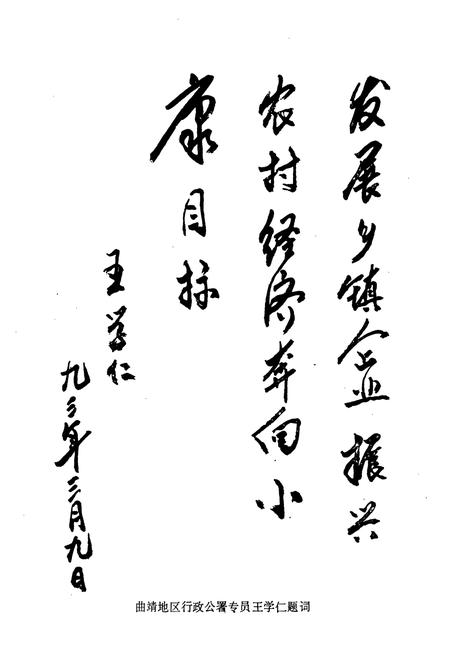 发展乡镇企业振兴
农村经济奔向小
康目标
王学仁
九三年三月九日
曲靖地区行政公署专员王学仁题词